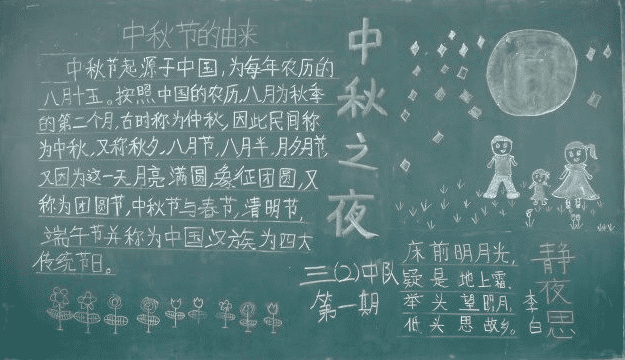 中秋节的由来
中秋节起源于中国,为每年农历的
八月十五。按照中国的农历,八月为秋季
的第二个月,古时称为仲秋,因此民间称
为中秋,又称秋夕,八月节,八月半,月夕月节,
又因为这一天月亮满圆,象征团圆,又
称为团圆节,中秋节与春节,清明节,
端午节并称为中国汉族为四大
传统节日。
中秋之夜
三(2)中队
第一期
静夜思
李白
床前明月光,
疑是地上霜.
举头望明月,
低头思故乡。